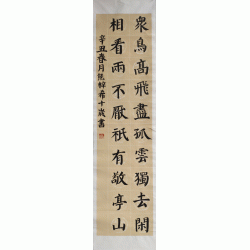 眾鳥高飛盡孤雲獨去閑
相看兩不厭祇有敬亭山
辛丑春月張梓希十歲書